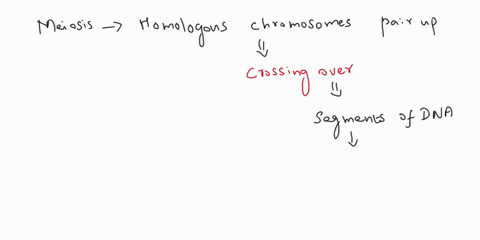 Meiosis → Homologous chromosomes pair up
⇓
Crossing over
⇓
Segments of DNA
↓